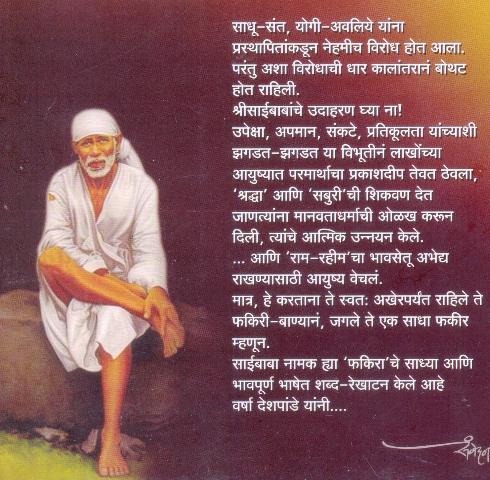 साधू–संत, योगी–अवलिये यांना
प्रस्थापितांकडून नेहमीच विरोध होत आला.
परंतु अशा विरोधाची धार कालांतरानं बोथट
होत राहिली.
श्रीसाईबाबांचे उदाहरण घ्या ना!
उपेक्षा, अपमान, संकटे, प्रतिकूलता यांच्याशी
झगडत–झगडत या विभूतीनं लाखोंच्या
आयुष्यात परमार्थाचा प्रकाशदीप तेवत ठेवला,
'श्रद्धा' आणि 'सबुरी'ची शिकवण देत
जाणत्यांना मानवताधर्माची ओळख करून
दिली, त्यांचे आत्मिक उन्नयन केले.
... आणि 'राम–रहीम'चा भावसेतू अभेद्य
राखण्यासाठी आयुष्य वेचलं.
मात्र, हे करताना ते स्वतः अखेरपर्यंत राहिले ते
फकिरी–बाण्यानं, जगले ते एक साधा फकीर
म्हणून.
साईबाबा नामक ह्या 'फकिरा'चे साध्या आणि
भावपूर्ण भाषेत शब्द–रेखाटन केले आहे
वर्षा देशपांडे यांनी....